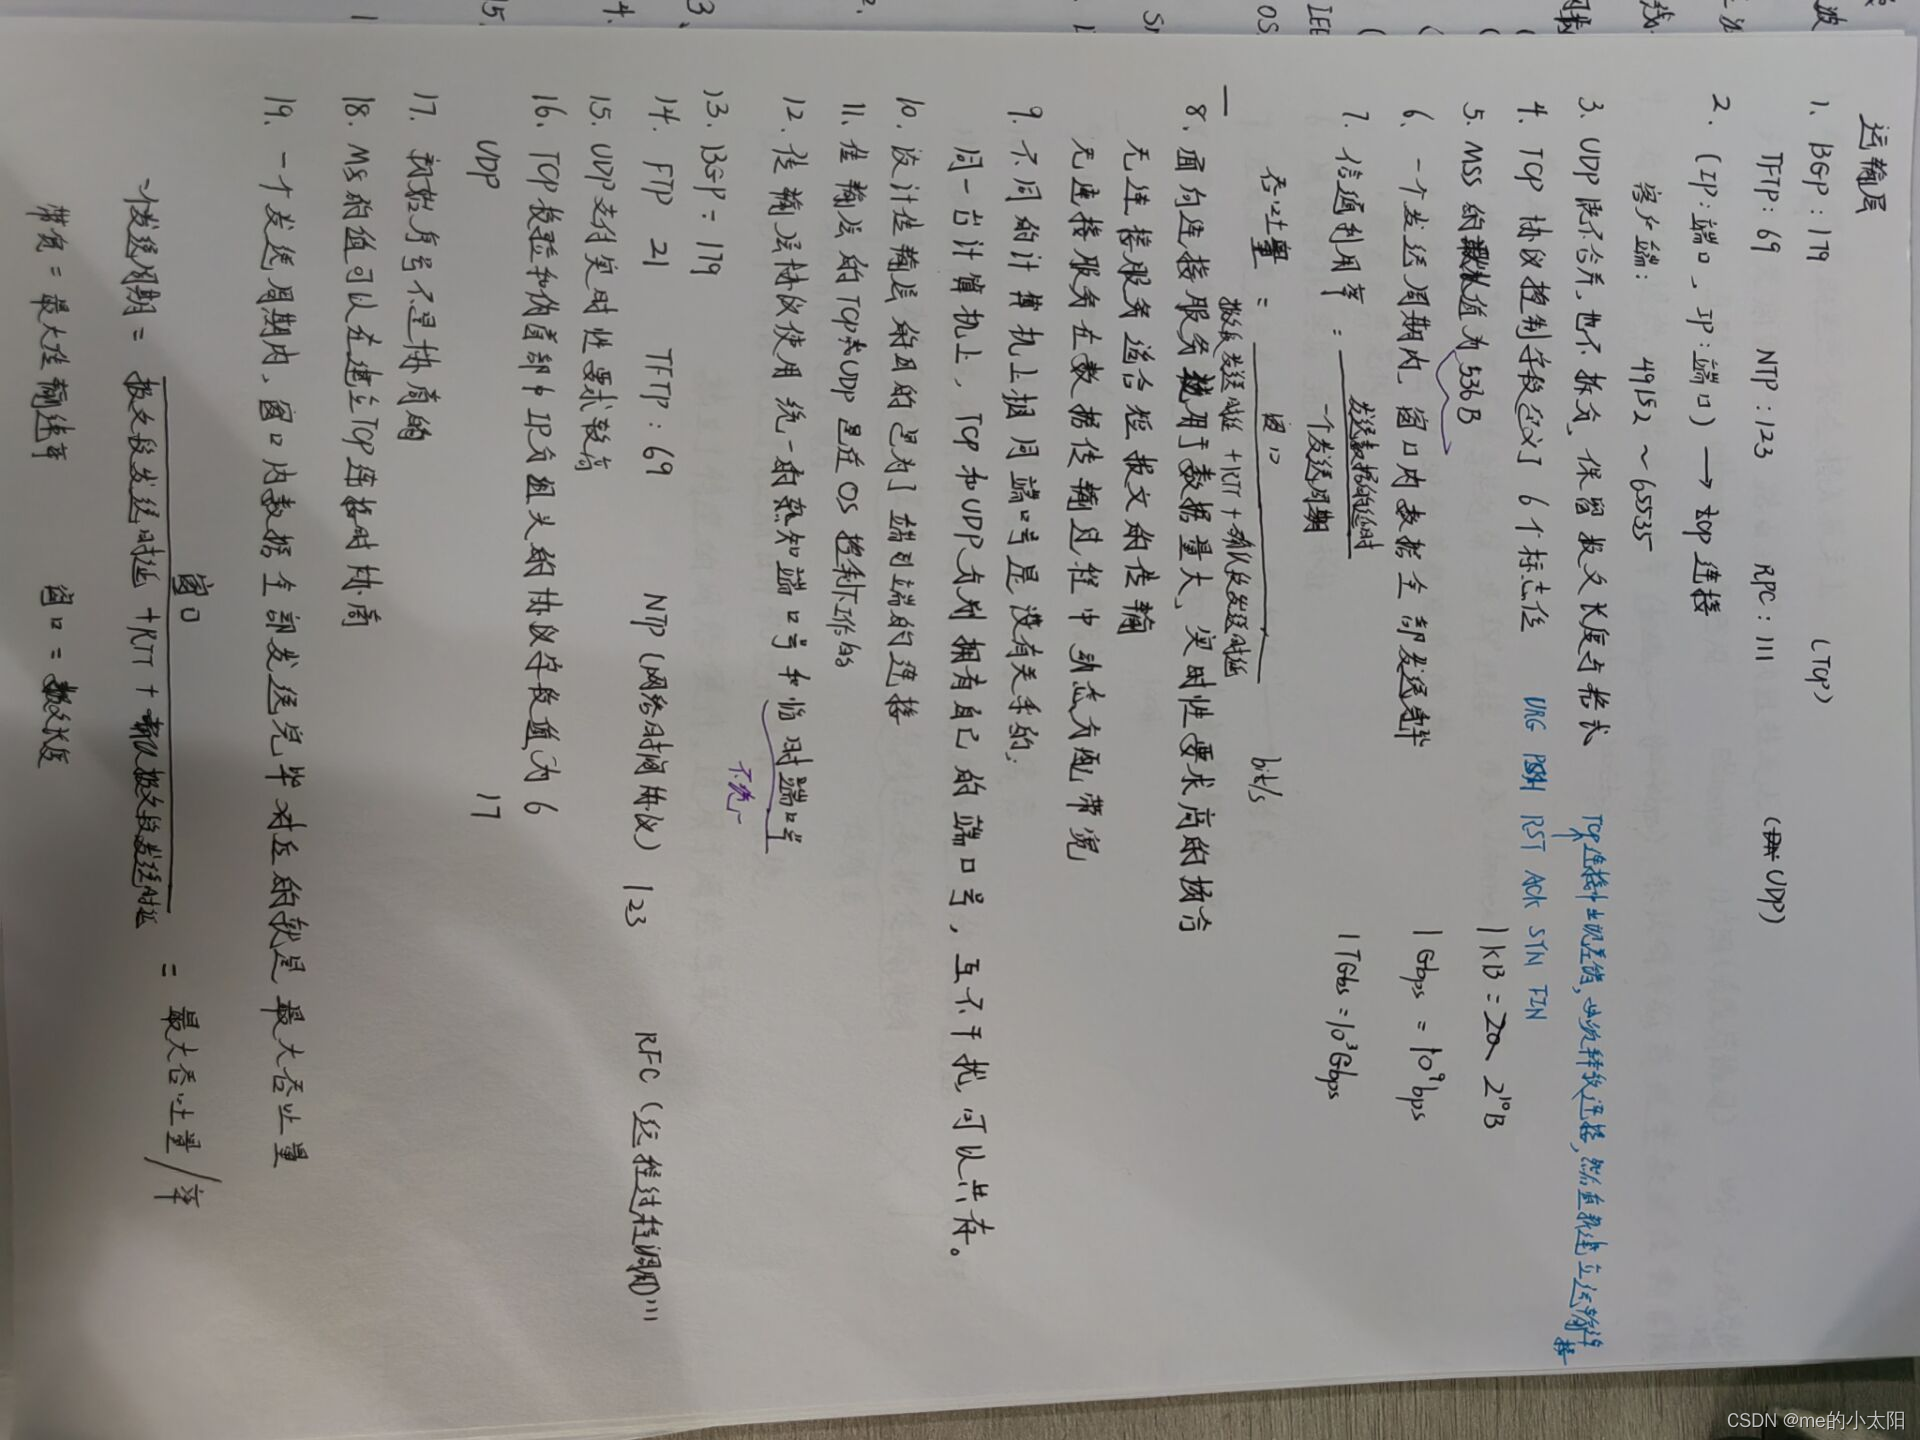 运输层
1. BGP:179 (TCP)
TFTP:69 NTP:123 RPC:111 (UDP)
2. (IP:端口、IP:端口) → tcp连接
客户端: 49152 ~ 65535
3. UDP 既不合并,也不拆分,保留报文长度与格式
TCP连接中出现差错,必须释放连接,然后重新建立运输连接
4. TCP 协议控制字段定义了 6个标志位 URG PSH RST ACK SYN FIN
5. MSS的默认值为536B 1KB = 2^10B
6. 一个发送周期内,窗口内数据全部发送完毕 1Gbps = 10^9bps
7. 信道利用率 = 发送数据的延时 / 一个发送周期 1TGbs = 10^3Gbps
吞吐量 = 窗口 / 数据发送时延 + RTT + 确认段发送时延 bit/s
8. 面向连接服务适用于数据量大、实时性要求高的场合
无连接服务适合短报文的传输
无连接服务在数据传输过程中动态分配带宽
9. 不同的计算机上相同端口号是没有关系的.
同一台计算机上,TCP和UDP分别拥有自己的端口号,互不干扰,可以共存。
10. 设计传输层的目的是为了端到端的连接
11. 传输层的TCP或UDP是在OS控制下工作的
12. 传输层协议使用统一的熟知端口号和临时端口号
不统一
13. BGP=179
14. FTP 21 TFTP:69 NTP(网络时间协议) 123 RFC(远程过程调用)111
15. UDP支付实时性要求较高
16. TCP校验和伪首部中IP分组头的协议字段值为6
UDP 17
17. 初始序号不是协商的
18. MSS的值可以在建立TCP连接时协商
19. 一个发送周期内、窗口内数据全部发送完毕 对应的就是 最大吞吐量
窗口
一个发送周期 = 报文段发送时延 + RTT + 确认报文段发送时延 = 最大吞吐量/率
带宽 = 最大传输速率 窗口 = 报文长度
CSDN @me的小太阳